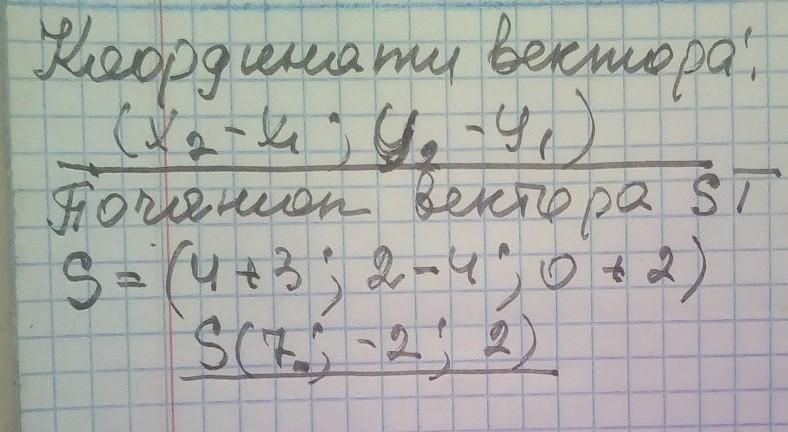 Координати вектора:
(x₂ - x₁ ; y₂ - y₁)
Початок вектора ST
S = (4 + 3 ; 2 - 4 ; 0 + 2)
S(7 ; -2 ; 2)